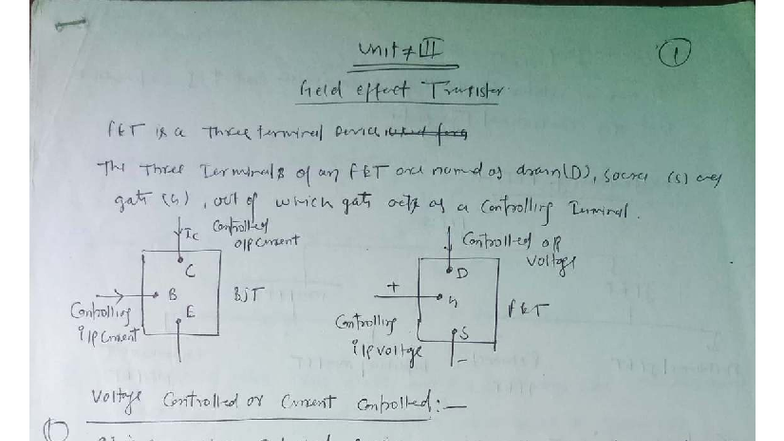 Unit # III
1
Field effect Transister.
FET is a three terminal Device
The Three Terminals of an FET are named as drain(D), source (S) and
gate (G), out of which gate acts as a controlling Terminal.
Ic Controlled
o/p current
C
B
E
BJT
Controlling
i/p Current
Controlled o/p
Voltage
D
+
G
S
-
FET
Controlling
i/p voltage
Voltage Controlled or Current Controlled:-